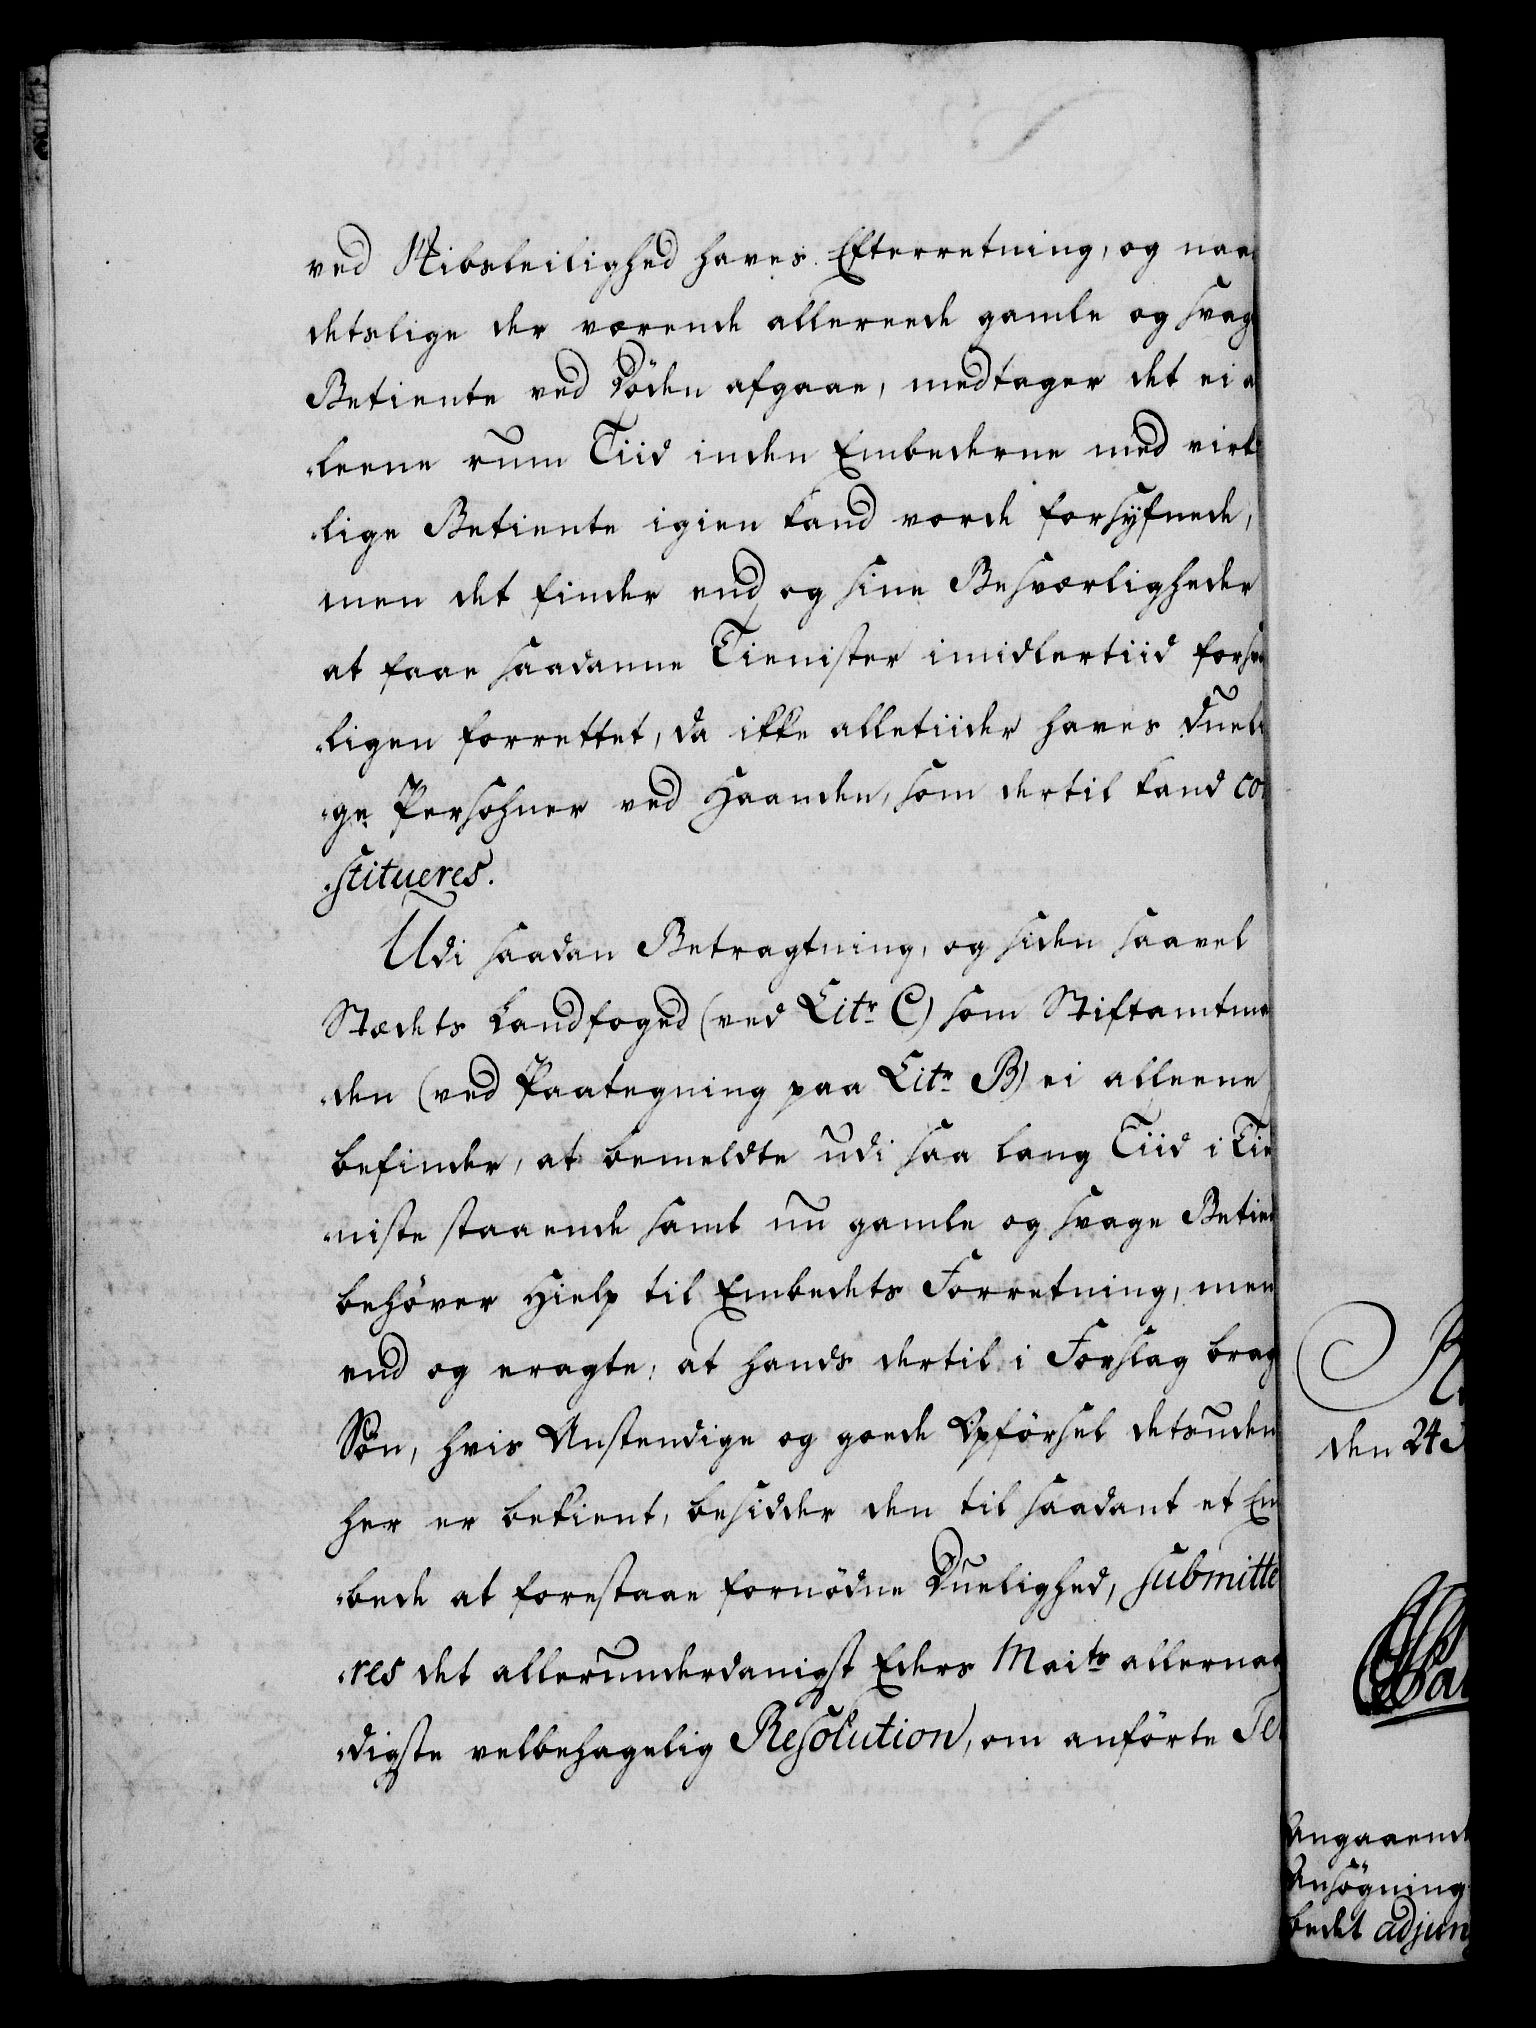 ved Skibsleilighed haves Efterretning, og naar
detslige der værende allereede gamle og svage
Betiente ved Döden afgaae, medtager det ei a
leene rum Tiid inden Embederne med virke
lige Betiente igien kand vorde forsÿfnede,
men det finder end og sine Besværligheder
at faae saadanne Tienister imidlertiid forsv
ligen forrettet, da ikke alletiider haves dueli
ge Persohner ved Haanden, som dertil kand co
stitueres.
Udi saadan Betragtning, og siden saavel
Stædets Landfoged (ved Litr C) som Stiftamtma
den (ved Paategning paa Litr B) ei alleene
befinder, at bemeldte udi saa lang Tiid i Tie
niste staaende samt nu gamle og svage Betien
behöver Hielp til Embedets Forretning, men
end og eragte, at hands dertil i Forslag brag
Sön, hvis Anstendige og goede Opförsel detsuden
her er bekient, besidder den til saadant et Em
bede at forestaae fornödne Duelighed, submitte
res det allerunderdanigst Eders Maits allernaa
digste velbehagelig Resolution, om anförte Te
den 24
Angaaende
Ansögning
bedet adjun